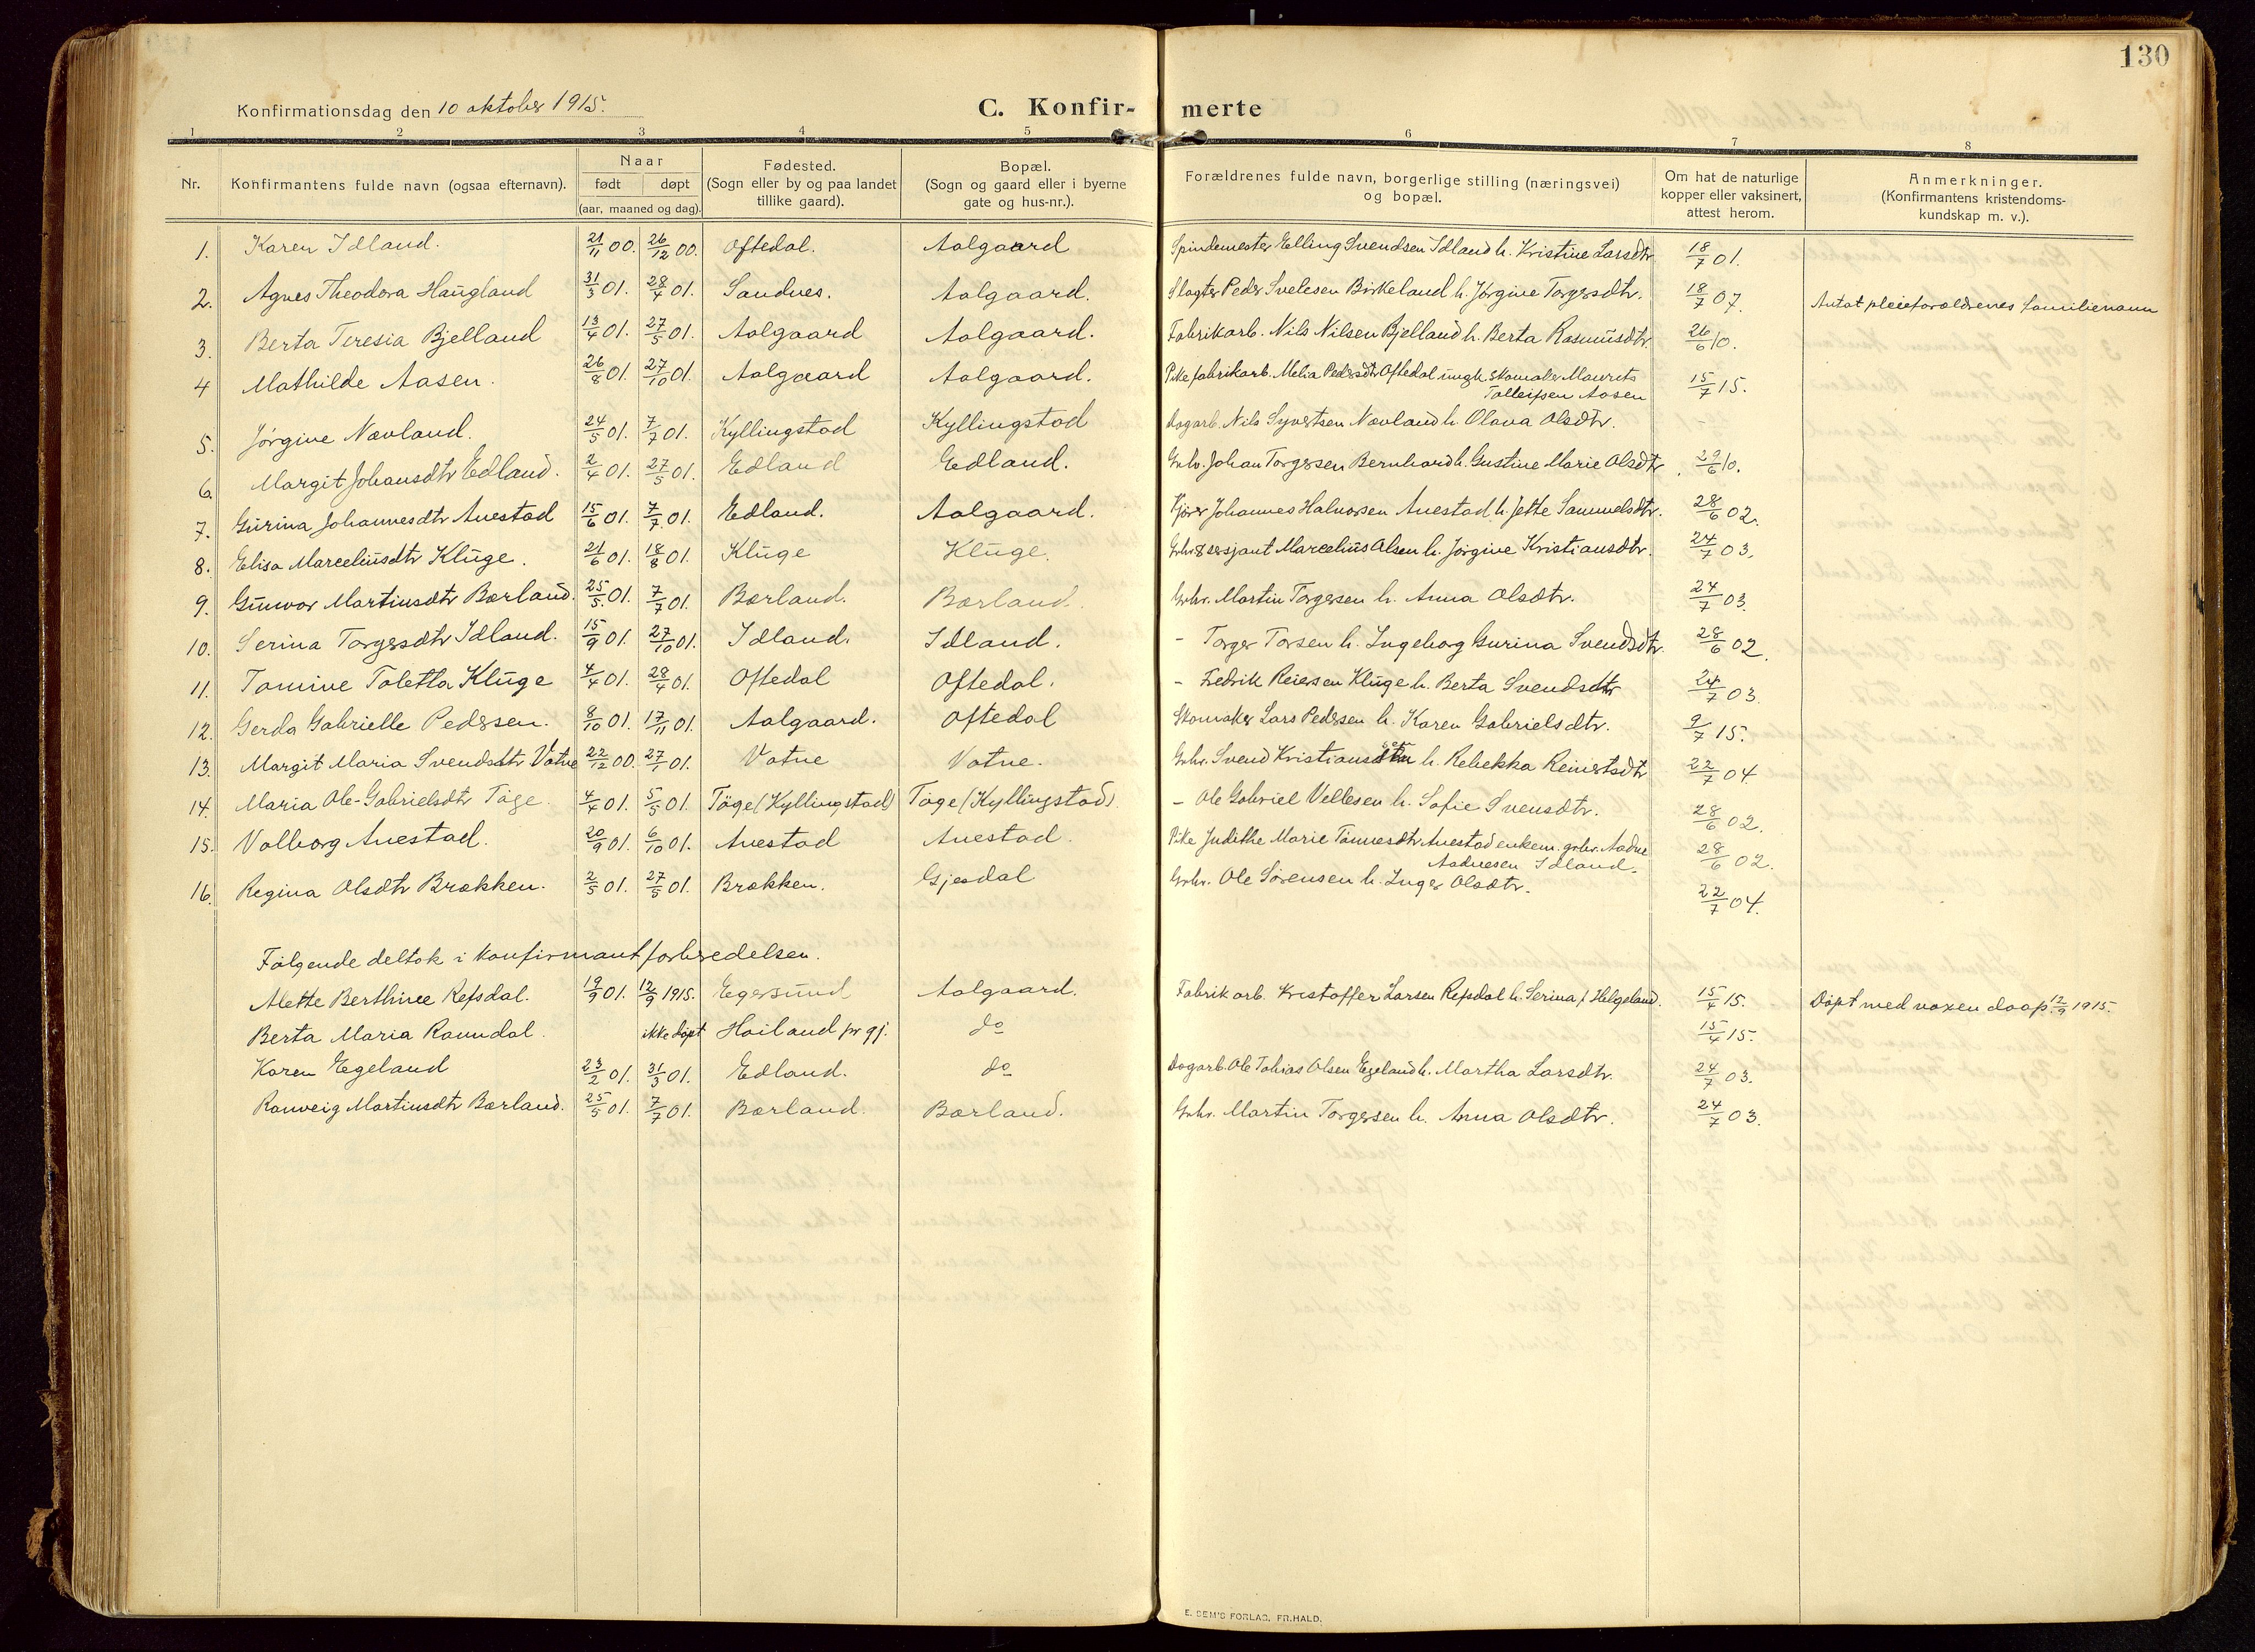 130
Konfirmationsdag den 10 oktober 1915.
C. Konfir- merte
1 2 3 4 5 6 7 8
Nr.
Konfirmantens fulde navn (ogsaa efternavn).
Naar
født døpt
(aar, maaned og dag).
Fødested.
(Sogn eller by og paa landet
tillike gaard).
Bopæl.
(Sogn og gaard eller i byerne
gate og hus-nr.).
Forældrenes fulde navn, borgerlige stilling (næringsvei)
og bopæl.
Om hat de naturlige
kopper eller vaksinert,
attest herom.
Anmerkninger.
(Konfirmantens kristendoms-
kundskap m. v.).
1. Karen Idland. 21/11 00. 26/12 00. Oftedal. Aalgaard Spindemester Elling Svendsen Idland h. Kristine Larsdtr 18/7 01.
2. Agnes Theodora Haugland 31/3 01. 28/4 01. Sandnes. Aalgaard. Slagter Peder Svelesen Birkeland h. Jørgine Torgersdtr. 18/7 07. Antat pleieforældrenes familienavn
3. Berta Teresia Bjelland 13/4 01. 27/5 01. Aalgaard Aalgaard. Fabrikarb. Nils Nilsen Bjelland h. Berta Rasmusdtr. 26/6 10.
4 Mathilde Aasen. 26/8 01. 27/10 01. Aalgaard Aalgaard. Pike fabrikarb. Melia Pedersdtr Oftedal ungk. Skomaker Maurits
Tolleifsen Aasen 15/7 15.
5. Jørgine Nævland. 24/5 01. 7/7 01. Kyllingstad Kyllingstad Dagarb. Nils Syvertsen Nævland h. Olava Olsdtr. -
6 Margit Johansdtr Edland. 2/4 01. 27/5 01. Edland Edland. Grbr. Johan Torgersen Bernhard h. Gustine Marie Olsdtr. 29/6 10.
7. Gurina Johannesdtr Auestad 15/6 01. 7/7 01. Edland. Aalgaard. Kjører Johannes Halvorsen Auestad h. Jette Samuelsdtr. 28/6 02.
8. Elisa Marceliusdtr Kluge. 21/6 01. 18/8 01. Kluge Kluge. Grbr & sersjant Marcelius Olsen h. Jørgine Kristiansdtr. 24/7 03.
9. Gunvor Martinsdtr Bærland. 25/5 01. 7/7 01. Bærland. Bærland. Grbr. Martin Torgersen h. Anna Olsdtr. 24/7 03.
10. Serina Torgersdtr Idland. 15/9 01. 27/10 01. Idland. Idland. - Torger Torsen h. Ingeborg Gurina Svendsdtr. 28/6 02.
11. Tomine Toletta Kluge 4/4 01. 28/4 01. Oftedal Oftedal. - Fredrik Reiersen Kluge h. Berta Svendsdtr 24/7 03.
12. Gerda Gabrielle Pedersen. 8/10 01. 17/11 01. Aalgaard. Oftedal Skomaker Lars Pedersen h. Karen Gabrielsdtr. 9/7 15.
13. Margit Maria Svendsdtr Vatne 22/12 00. 27/1 01. Vatne Vatne. Grbr. Svend Kristiansen h. Rebekka Reinertsdtr 22/7 04.
14. Maria Ole-Gabrielsdtr Tøge. 4/4 01. 5/5 01. Tøge (Kyllingstad) Tøge (Kyllingstad). - Ole Gabriel Vellesen h. Sofie Svensdtr. 28/6 02.
15. Valborg Auestad. 20/9 01. 6/10 01. Auestad Auestad. Pike Judithe Marie Tønnesdtr Auestad enkem. grbr. Aadne
Aadnesen Idland. 28/6 02.
16. Regina Olsdtr Brækken. 2/5 01. 27/5 01. Brækken. Gjesdal Grbr. Ole Sørensen h. Inger Olsdtr. 22/7 04.
Følgende deltok i konfirmantforberedelsen.
Alette Berthine Refsdal. 19/9 01. 12/9 1915. Egersund Aalgaard. Fabrikarb. Kristoffer Larsen Refsdal h. Serina f. Helgeland. 15/4 15. Døpt med voxen daap 12/9 1915.
Berta Maria Ramndal. ikke døpt Høiland pr gj. do 15/4 15.
Karen Egeland 23/2 01. 31/3 01. Edland. do Dagarb. Ole Tobias Olsen Egeland h. Martha Larsdtr. 24/7 03.
Ranveig Martinsdtr Bærland. 25/5 01. 7/7 01. Bærland. Bærland. Grbr. Martin Torgersen h. Anna Olsdtr. 24/7 03.
E. SEM'S FORLAG. FR.HALD.